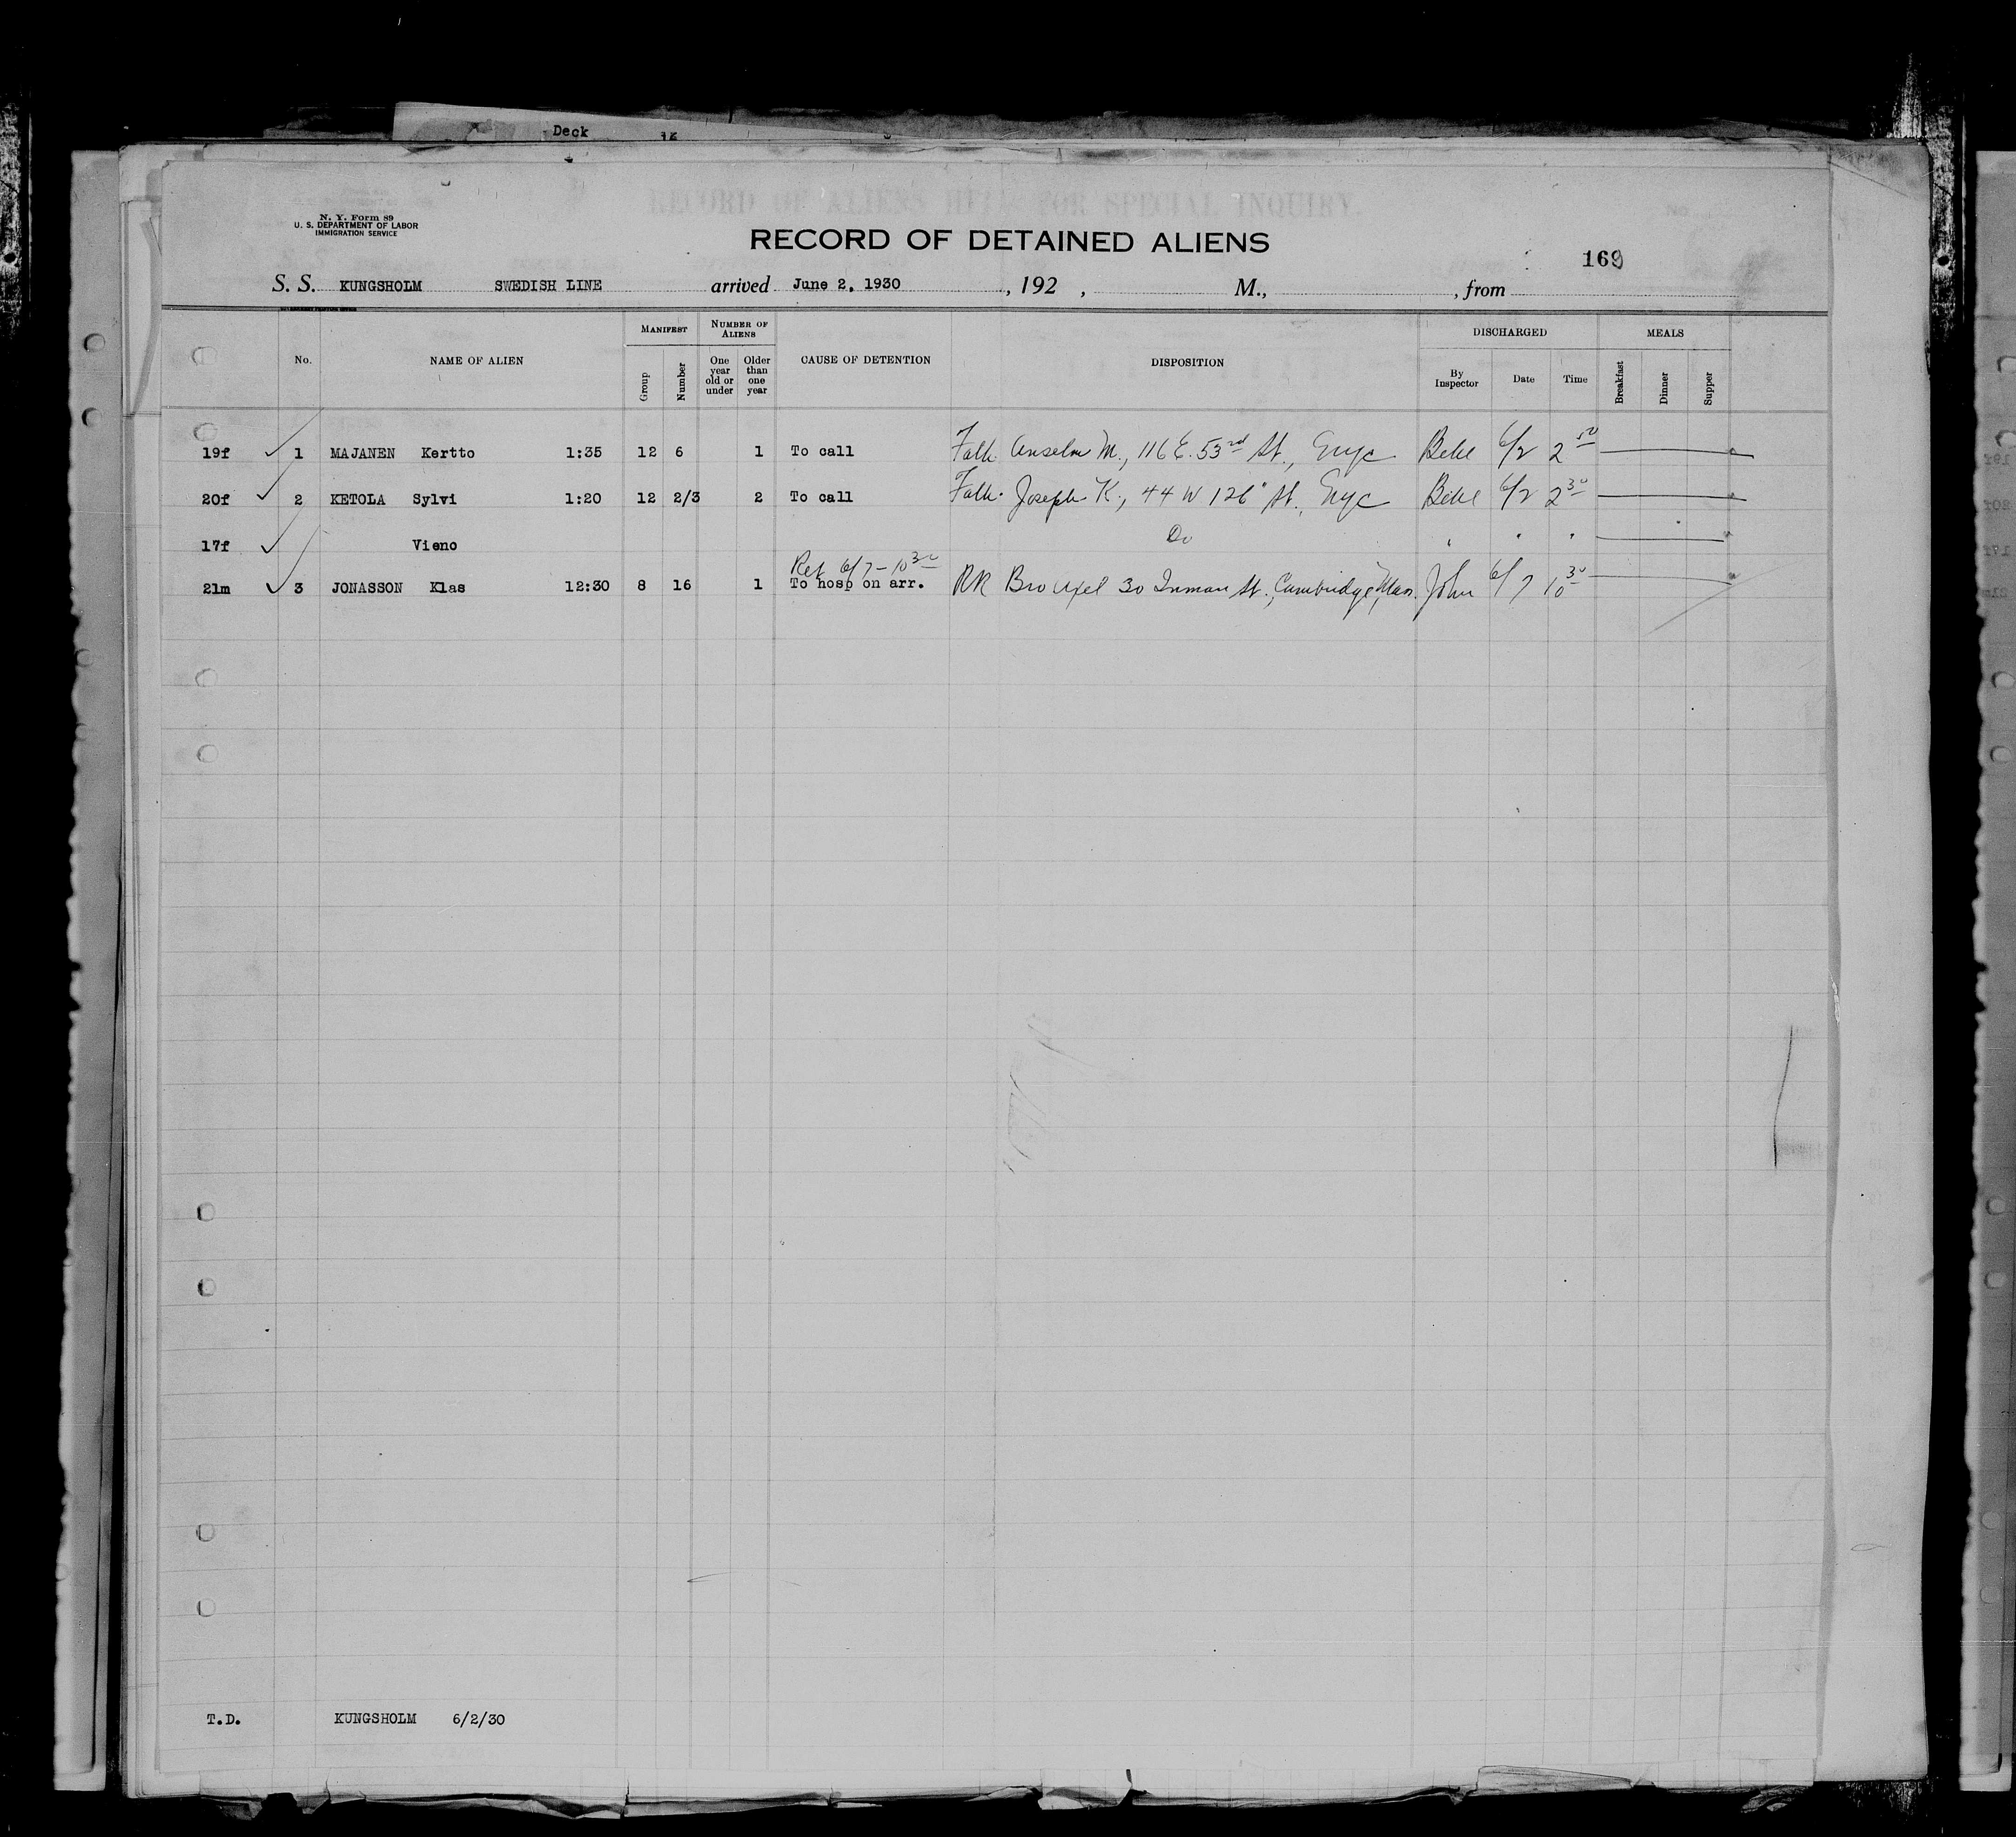 Deck
N. Y. Form 89
U. S. DEPARTMENT OF LABOR
IMMIGRATION SERVICE
RECORD OF ALIENS HELD FOR SPECIAL INQUIRY.
RECORD OF DETAINED ALIENS
169
S. S. KUNGSHOLM SWEDISH LINE arrived June 2, 1930, 192 , M., , from
No. NAME OF ALIEN MANIFEST Group Number NUMBER OF ALIENS One year old or under Older than one year CAUSE OF DETENTION DISPOSITION DISCHARGED By Inspector Date Time MEALS Breakfast Dinner Supper
19f 1 MAJANEN Kertto 1:35 12 6 1 To call Fath. Anselm M., 116 E. 53rd St., 6/2 2 50
20f 2 KETOLA Sylvi 1:20 12 2/3 2 To call Fath. Joseph K., 44 W 126" St., 6/2 2 30
17f Vieno Do " " "
Ret 6/7 - 10 30
21m 3 JONASSON Klas 12:30 8 16 1 To hosp on arr. RR Bro Axel 30 Inman St., Cambridge, Mass. John 6/7 10 30
T.D. KUNGSHOLM 6/2/30